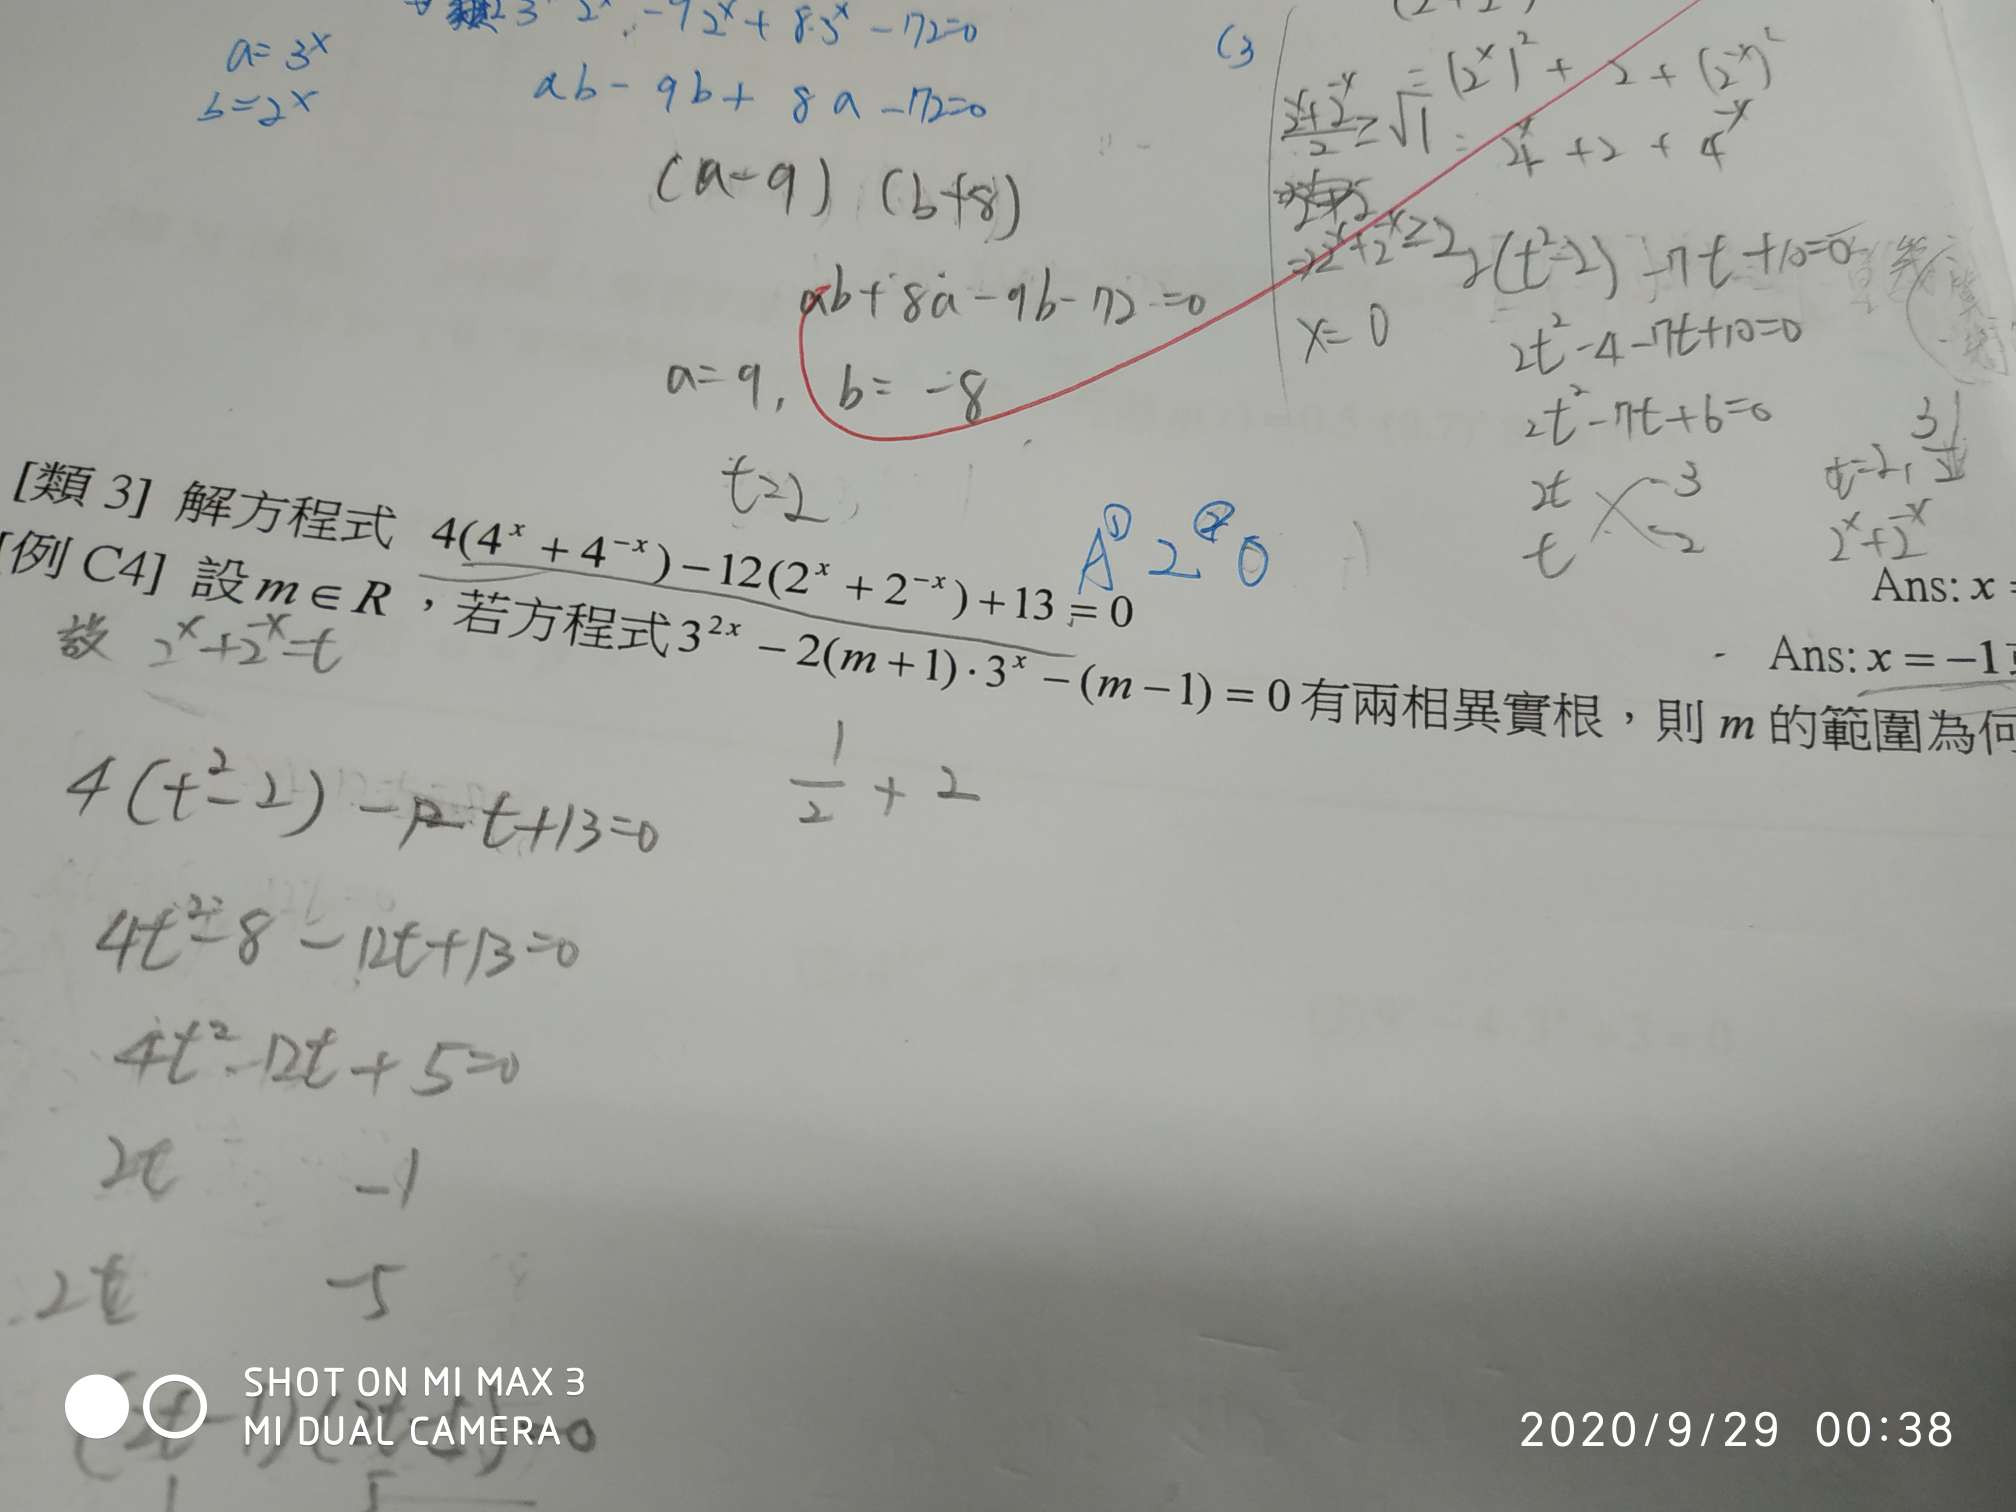 3ˣ 2ˣ - 9 2ˣ + 8·3ˣ - 72=0
a=3ˣ
b=2ˣ
ab - 9b + 8a - 72=0
(a-9) (b+8)
ab+8a-9b-72=0
a=9, b=-8
t=2
(3
=(2ˣ)²+2+(2⁻ˣ)²
(2ˣ+2⁻ˣ)/2 ≥ √1
= 4ˣ+2+4⁻ˣ
⇒2ˣ+2⁻ˣ≥2
2(t²-2)-7t+10=0
x=0
2t²-4-7t+10=0
2t²-7t+6=0
2t -3
t -2
t=2,
2ˣ+2⁻ˣ
A① 2② 0
Ans: x =
[類 3] 解方程式 4(4ˣ + 4⁻ˣ) − 12(2ˣ + 2⁻ˣ) + 13 = 0
Ans: x = −1
[例 C4] 設 m ∈ R，若方程式 3²ˣ − 2(m + 1)·3ˣ − (m − 1) = 0 有兩相異實根，則 m 的範圍為何
設 2ˣ+2⁻ˣ=t
1/2 + 2
4(t²-2)-12t+13=0
4t²-8-12t+13=0
4t²-12t+5=0
2t -1
2t -5
SHOT ON MI MAX 3
MI DUAL CAMERA
2020/9/29 00:38